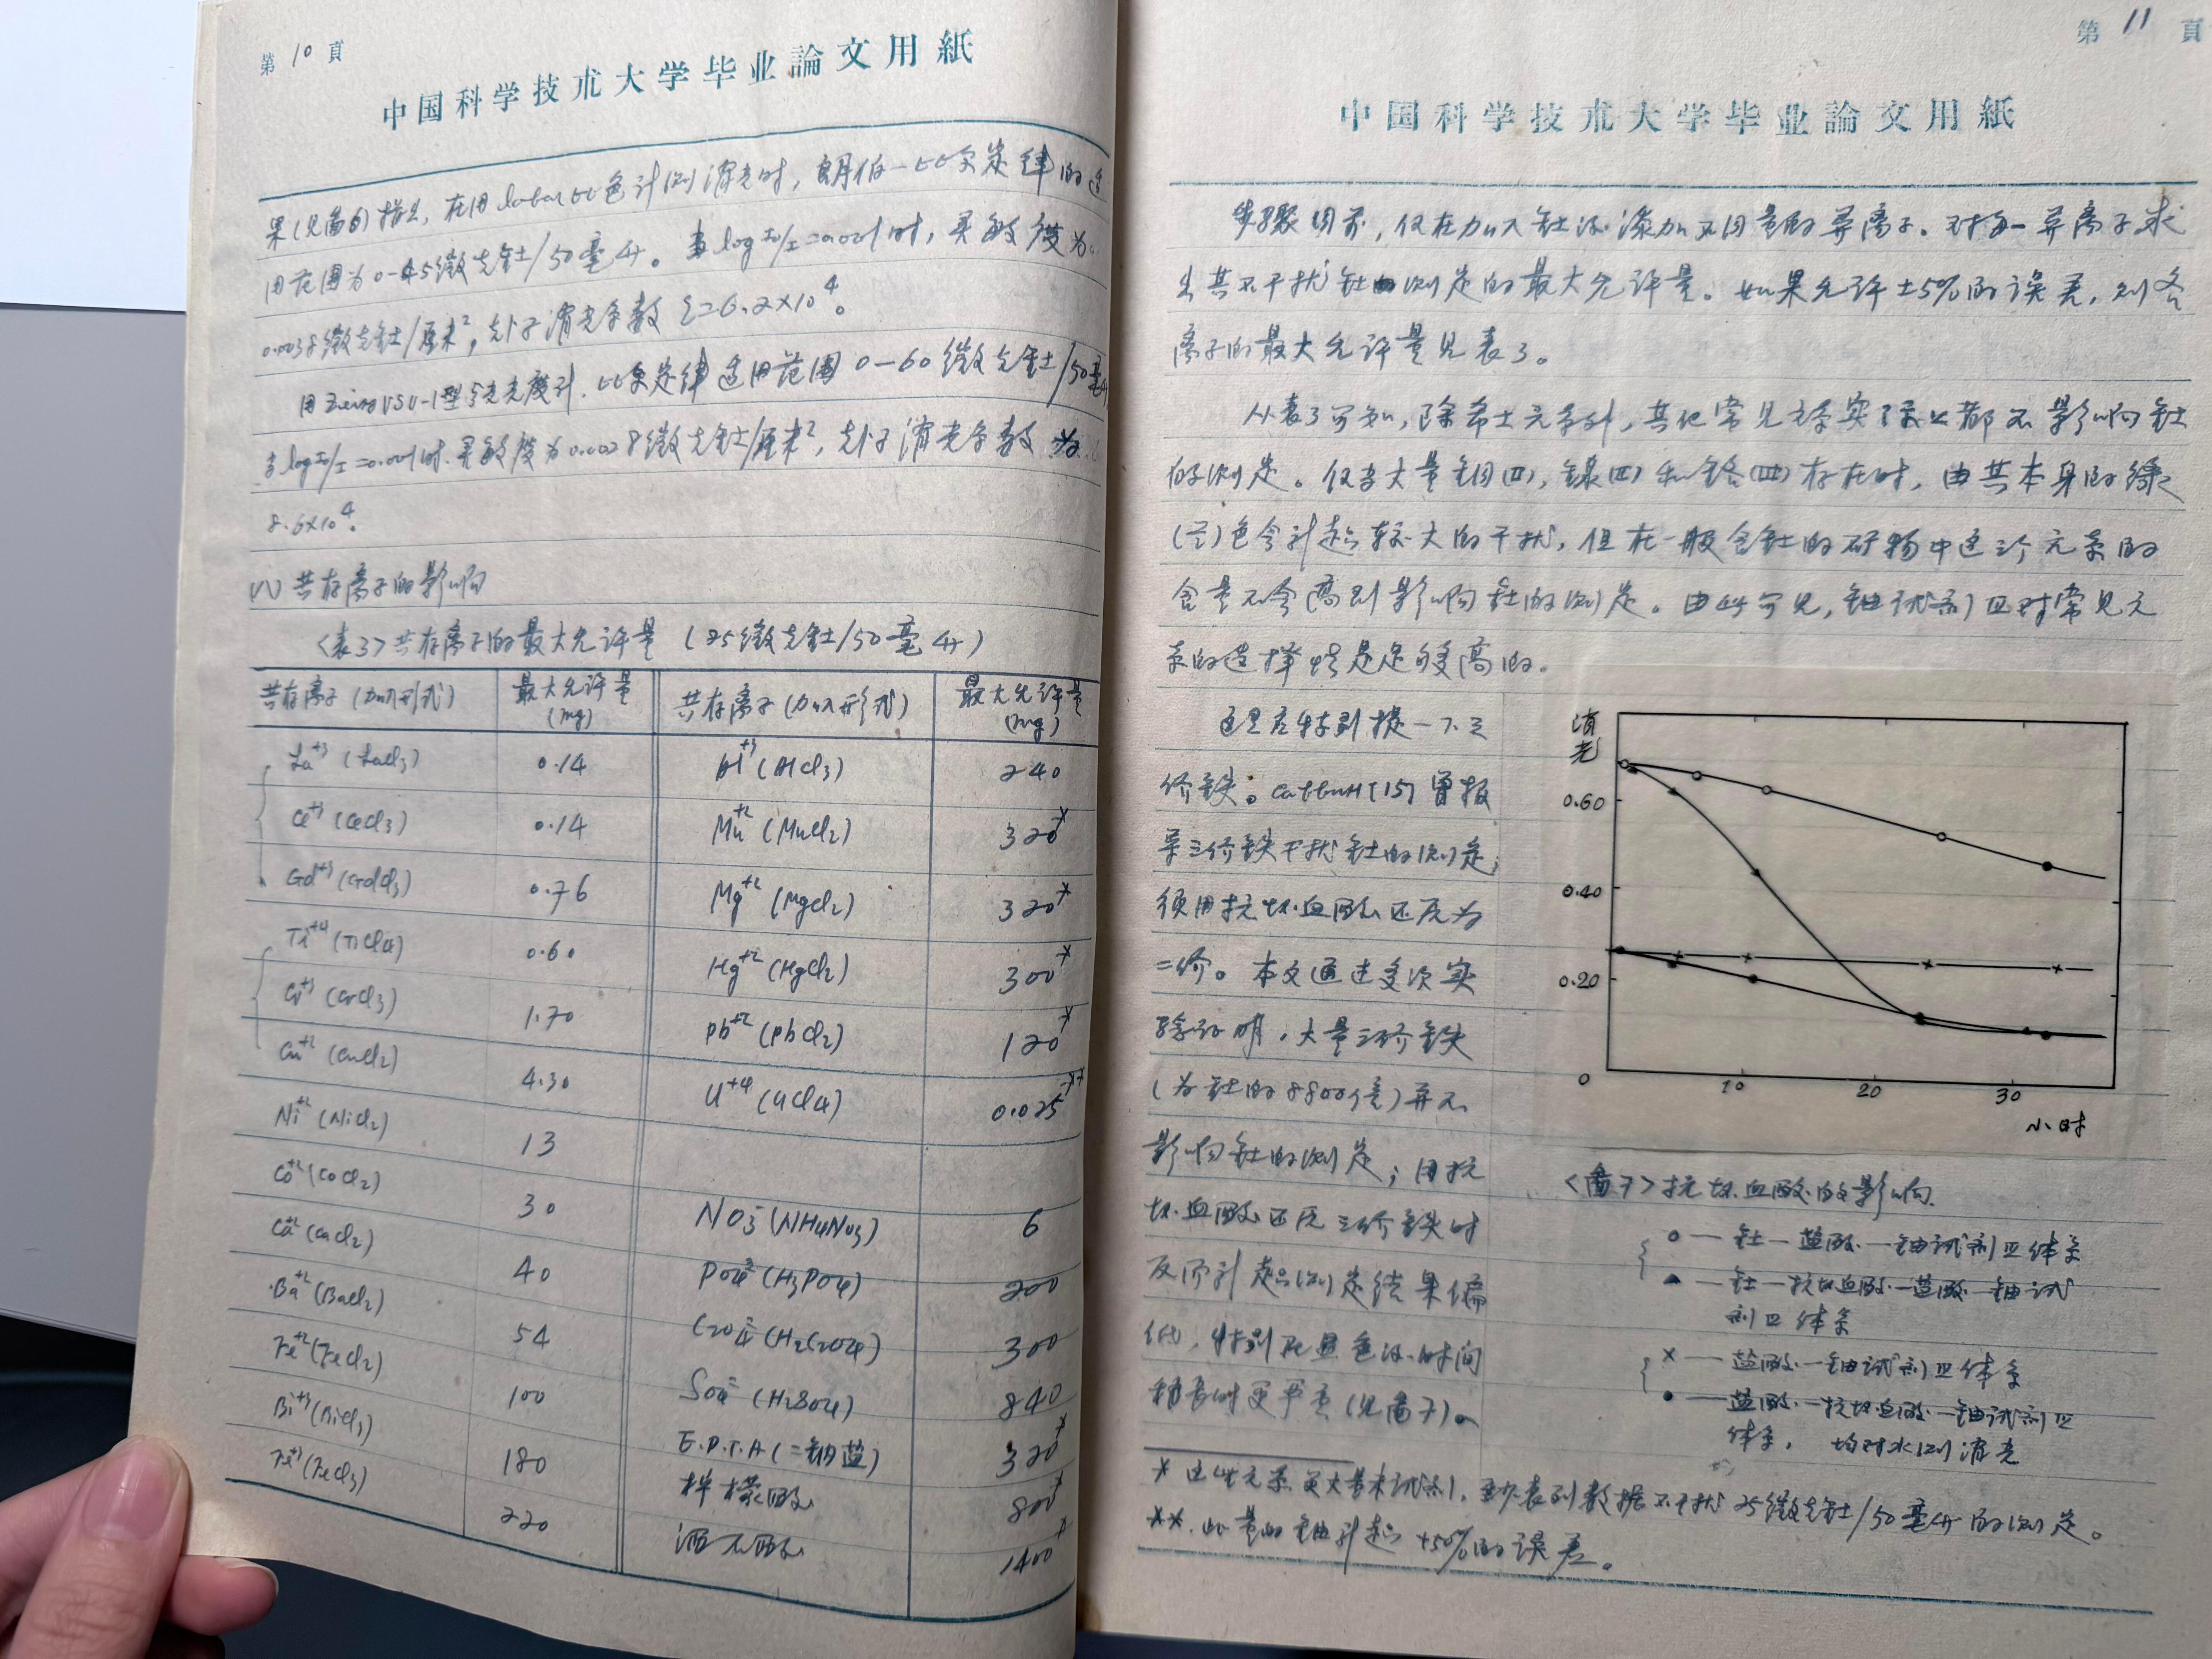 第 10 頁
中国科学技朮大学毕业論文用紙
果(见畵6)指出, 在用 比色计测消光时, 朗伯—比尔定律的适
用范围为0-45微克钍/50毫升。 当log I₀/I=0.001时, 灵敏度为
0.0038微克钍/厘米², 克分子消光系数 ε=6.2×10⁴。
用Zeiss VSU-1型分光光度计. 比尔定律适用范围0—60微克钍/50毫升
当log I₀/I=0.001时. 灵敏度为0.0028微克钍/厘米², 克分子消光系数为
8.6×10⁴。
(八) 共存离子的影响
<表3> 共存离子的最大允许量 (25微克钍/50毫升)
共存离子(加入形式) 最大允许量(mg) 共存离子(加入形式) 最大允许量(mg)
La⁺³ (LaCl₃) 0.14 Al⁺³ (AlCl₃) 240
Ce⁺³ (CeCl₃) 0.14 Mn⁺² (MnCl₂) 320*
Gd⁺³ (GdCl₃) 0.76 Mg⁺² (MgCl₂) 320*
Ti⁺⁴ (TiCl₄) 0.60 Hg⁺² (HgCl₂) 300*
Cr⁺³ (CrCl₃) 1.70 Pb⁺² (PbCl₂) 120*
Cu⁺² (CuCl₂) 4.30 U⁺⁴ (UCl₄) 0.025**
Ni⁺² (NiCl₂) 13
Co⁺² (CoCl₂) 30 NO₃⁻ (NH₄NO₃) 6
Ca⁺² (CaCl₂) 40 PO₄⁻³ (H₃PO₄) 200
Ba⁺² (BaCl₂) 54 C₂O₄⁼ (H₂C₂O₄) 300
Fe⁺² (FeCl₂) 100 SO₄⁼ (H₂SO₄) 840
Bi⁺³ (BiCl₃) 180 E.D.T.A (二钠盐) 320*
Fe⁺³ (FeCl₃) 220 柠檬酸 800*
酒石酸 1400*
第 11 頁
中国科学技朮大学毕业論文用紙
步骤同前, 仅在加入钍后添加不同量的异离子。对每一异离子求
出其不干扰钍的测定的最大允许量。如果允许±5%的误差, 则各
离子的最大允许量见表3。
从表3可知, 除希土元素外, 其他常见元素实际上都不影响钍
的测定。仅当大量铜(II), 镍(II)和铬(III)存在时, 由其本身的绿
(兰)色会引起较大的干扰, 但在一般含钍的矿物中这三个元素的
含量不会高到影响钍的测定。由此可见, 铀试剂III对常见元
素的选择性是足够高的。
这里应特别提一下三
价铁。Саввин[15]曾报
导三价铁干扰钍的测定,
须用抗坏血酸还原为
二价。本文通过多次实
验证明, 大量三价铁
(为钍的8800倍)并不
影响钍的测定; 用抗
坏血酸还原三价铁时
反而引起测定结果偏
低, 特别在显色后时间
稍长时更严重(见畵7)。
消光
0.60
0.40
0.20
0
10 20 30
小时
<畵7> 抗坏血酸的影响.
○ — 钍—盐酸—铀试剂III体系
▲ — 钍—抗坏血酸—盐酸—铀试
剂III体系
× — 盐酸—铀试剂III体系
● — 盐酸—抗坏血酸—铀试剂III
体系, 均对水测消光
* 这些元素更大量未试, 至少表列数据不干扰25微克钍/50毫升的测定。
**. 此量的铀引起+50%的误差。